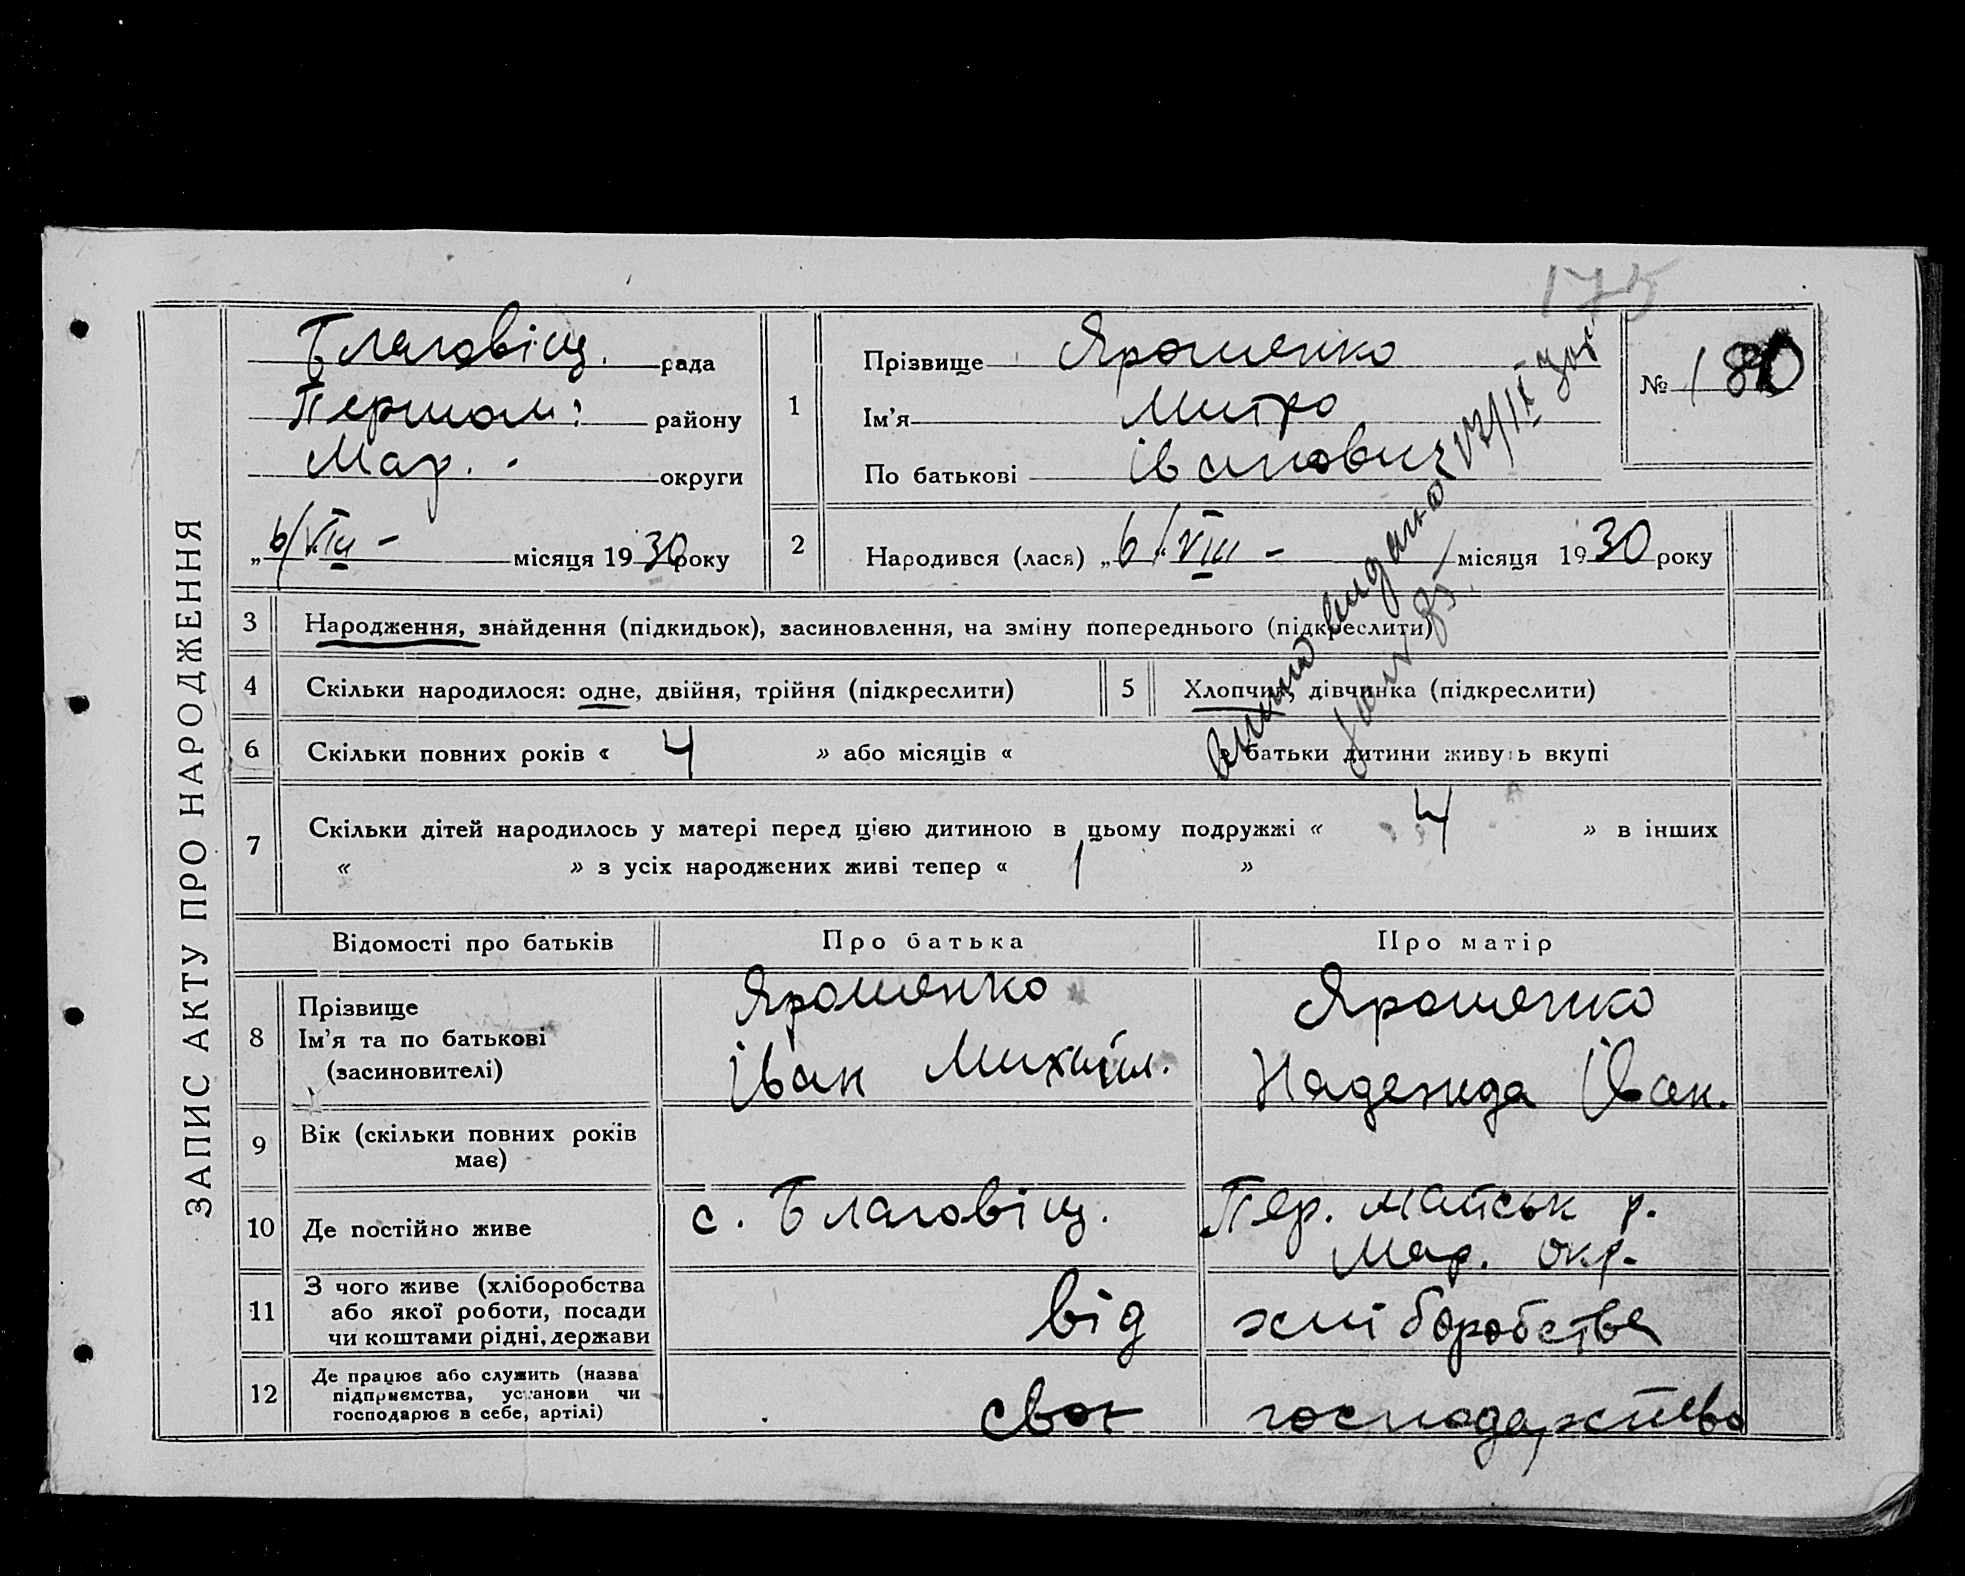 175
ЗАПИС АКТУ ПРО НАРОДЖЕННЯ
Благовіщ. рада
Першом: району
Мар. округи
„6/VIII - місяця 1930 року
1
Прізвище Ярошенко
Ім'я Митро
По батькові Іванович
№ 180
2
Народився (лася) „6/VIII - місяця 1930 року
17/IX
видано
3 Народження, знайдення (підкидьок), засиновлення, на зміну попереднього (підкреслити)
4 Скільки народилося: одне, двійня, трійня (підкреслити)
5 Хлопчик, дівчинка (підкреслити)
6 Скільки повних років « 4 » або місяців « батьки дитини живуть вкупі
7 Скільки дітей народилось у матері перед цією дитиною в цьому подружжі « 4 » в інших
« » з усіх народжених живі тепер « 1 »
Відомості про батьків Про батька Про матір
8 Прізвище
Ім'я та по батькові
(засиновителі)
Ярошенко
Іван Михайл.
Ярошенко
Надежда Іван.
9 Вік (скільки повних років
має)
10 Де постійно живе с. Благовіщ. Пер. майськ р.
Мар. окр.
11 З чого живе (хліборобства
або якої роботи, посади
чи коштами рідні, держави
від хліборобства
12 Де працює або служить (назва
підприємства, установи чи
господарює в себе, артілі)
своє господарство